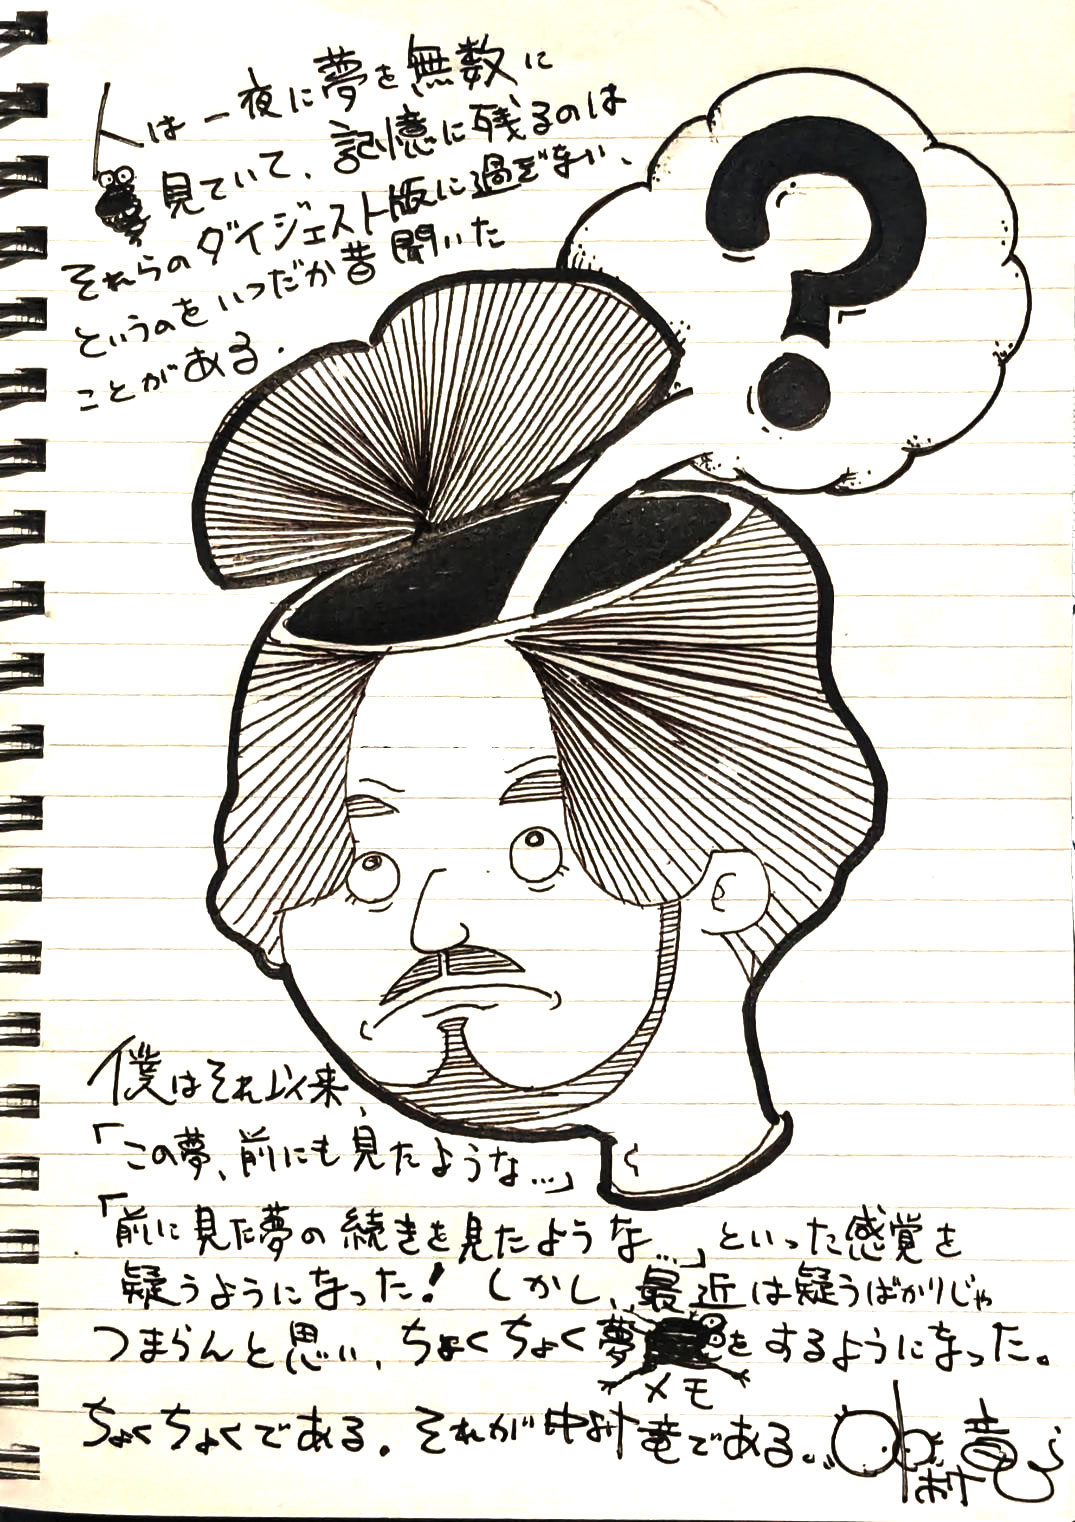 人は一夜に夢を無数に
見ていて、記憶に残るのは
それらのダイジェスト版に過ぎない、
というのをいつだか昔聞いた
ことがある.
?
僕はそれ以来、
「この夢、前にも見たような…」
「前に見た夢の続きを見たような…」といった感覚を
疑うようになった! しかし、最近は疑うばかりじゃ
つまらんと思い、ちょくちょく夢をするようになった。
メモ
ちょくちょくである. それが中村竜である.
中村竜